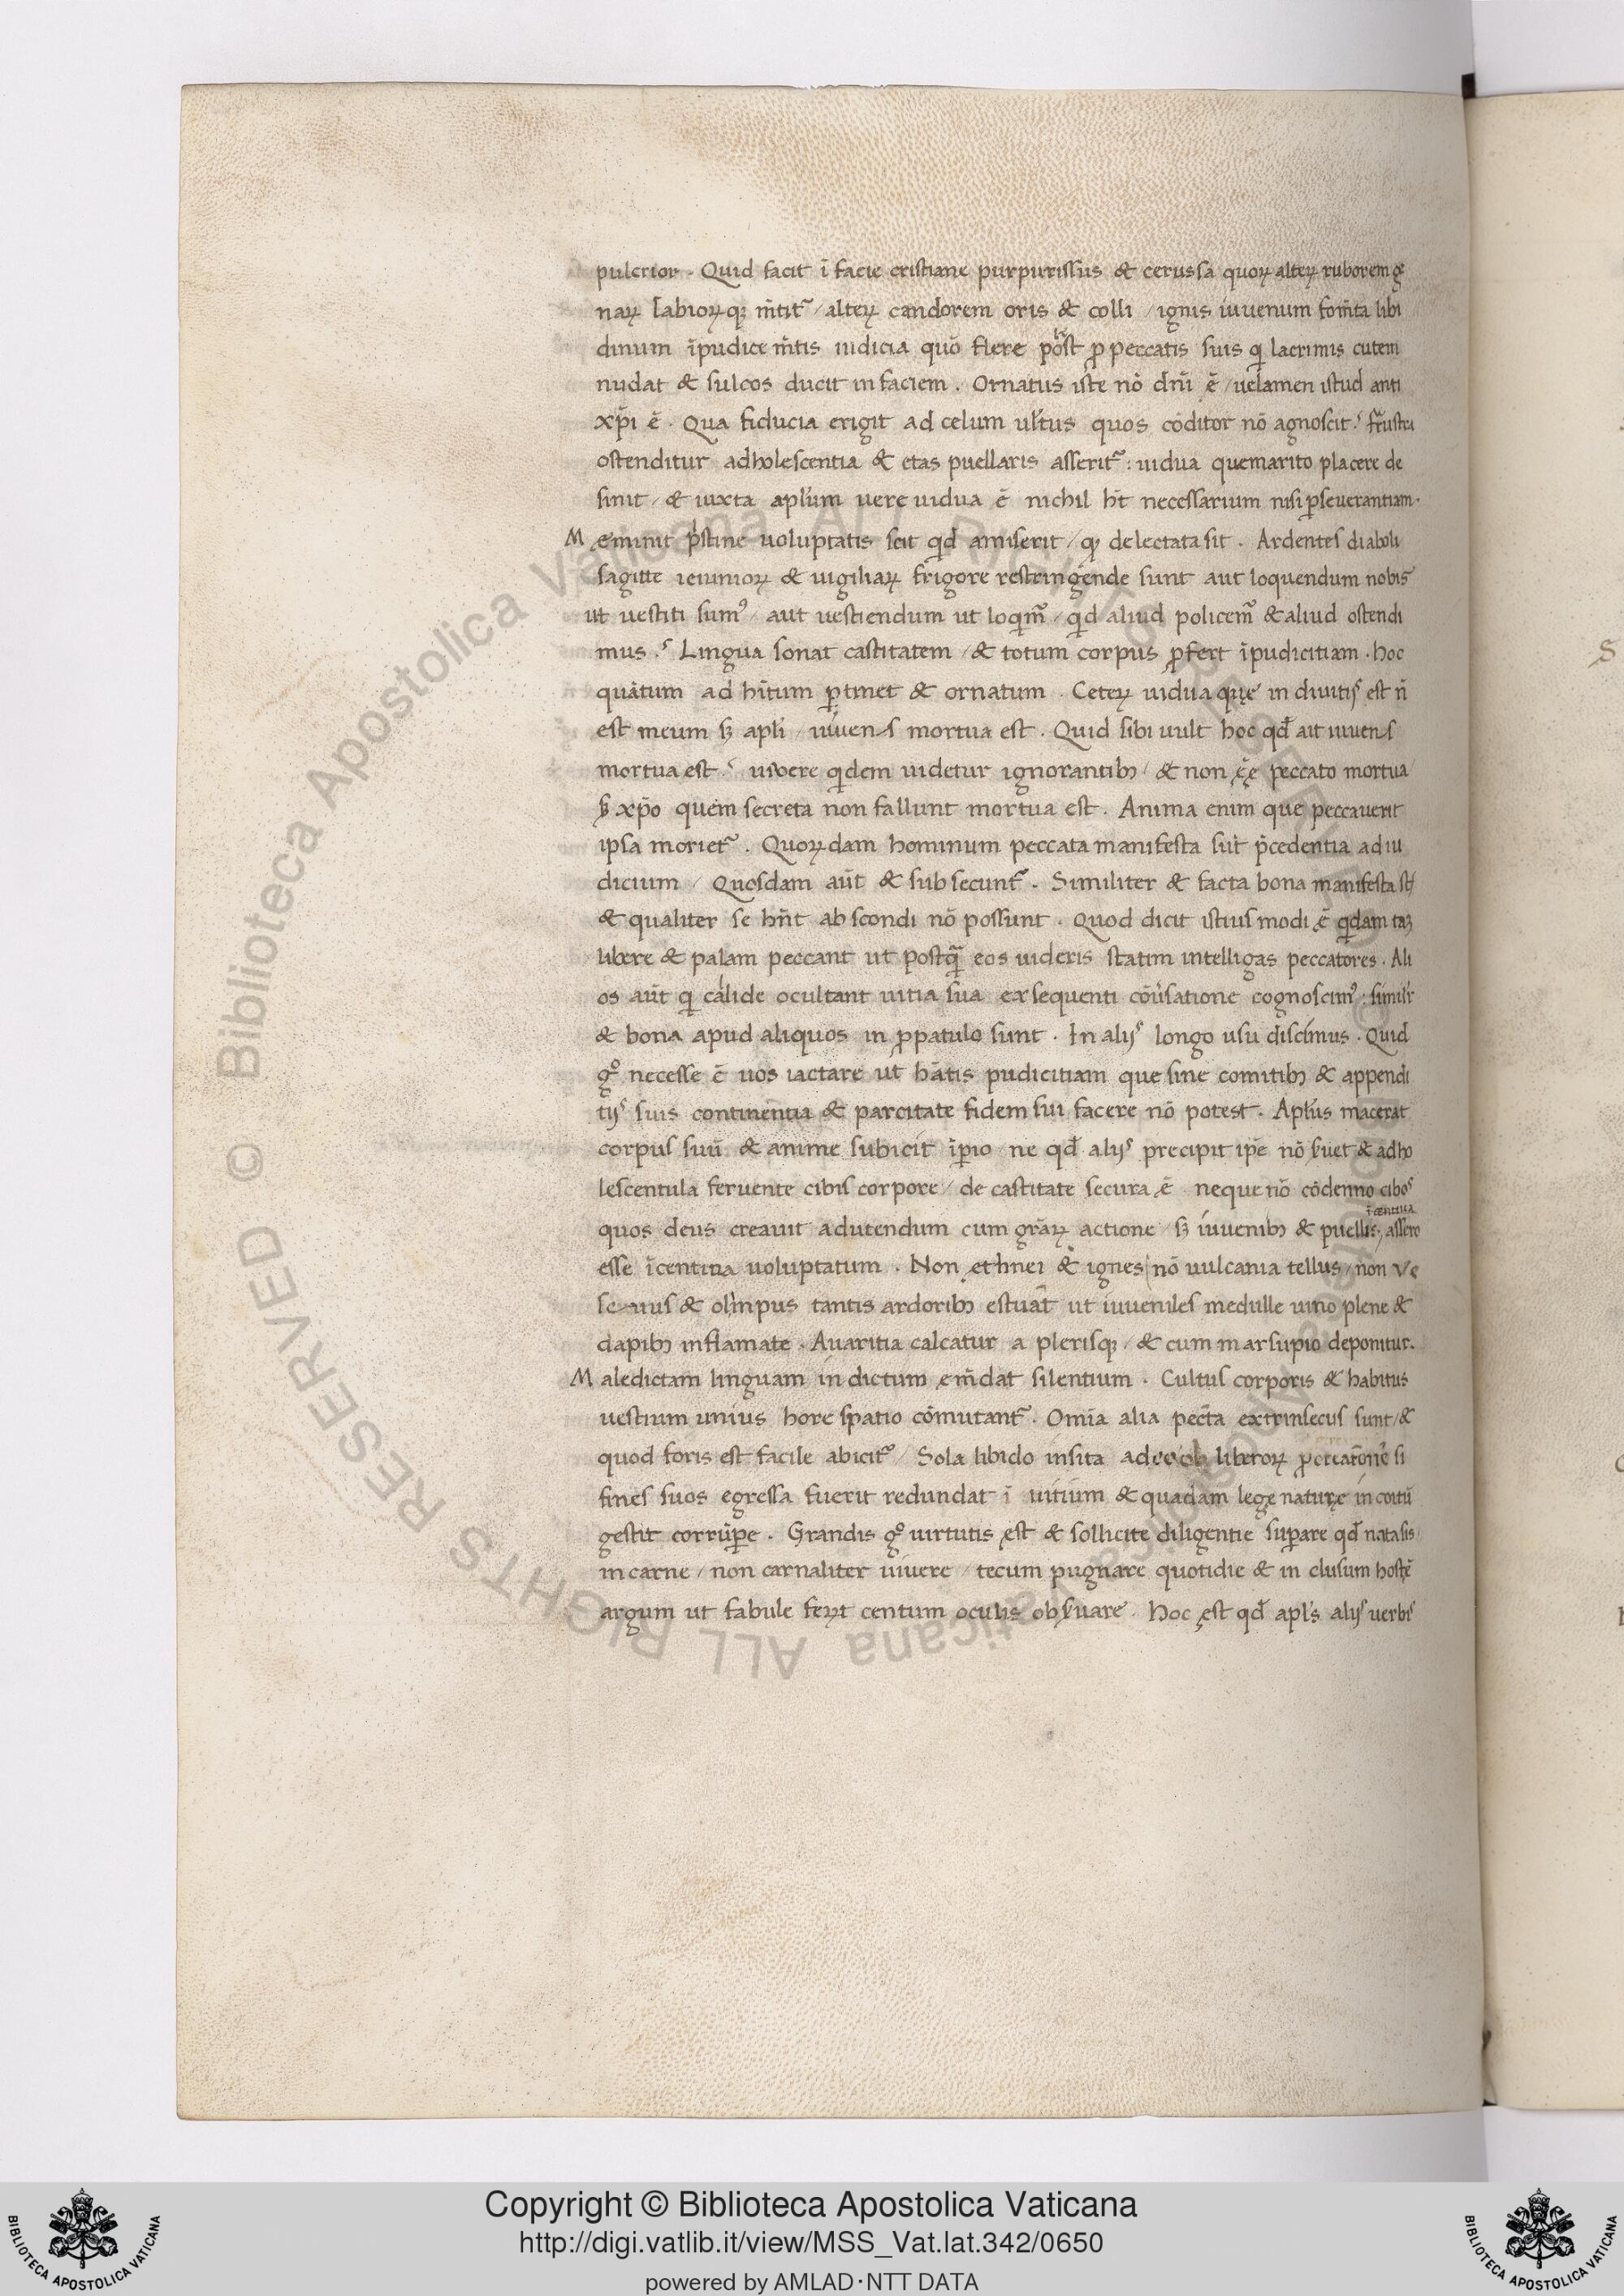 pulcrior . Quid facit ī facie cristiane purpurissus & cerussa quoꝝ alteꝝ ruborem ge
naꝝ labioꝝqꝫ m̄titᷣ / alteꝝ candorem oris & colli / ignis iuvenum fom̄ta libi
dinum īpudice m̄tis iudicia quō flere pōst ꝓ peccatis suis q lacrimis cutem
nudat & sulcos ducit in faciem . Ornatus iste nō dn̄i ē / velamen istud anti
xp̄i ē . Qua fiducia erigit ad celum vultus quos cōditor nō agnoscit. frustra
ostenditur adholescentia & etas puellaris asseritᷣ : vidua que marito placere de
sinit / & iuxta apl̄um vere vidua ē nichil ht̄ necessarium nisi ꝑseverantiam .
Meminit pristine voluptatis scit qd amiserit / qꝫ delectata sit . Ardentes diaboli
sagitte ieiunioꝝ & vigiliaꝝ frigore restringende sunt aut loquendum nobis
ut vestiti sumꝰ / aut vestiendum ut loqimꝰ / qid aliud policemᷣ & aliud ostendi
mus . Lingua sonat castitatem / & totum corpus ꝓfert īpudicitiam . hoc
quātum ad hītum ꝑtinet & ornatum . Ceteꝝ vidua que in divitiis est n̄
est meum sꝫ apl̄i / vivens mortua est . Quid sibi vult hoc qd̄ ait vivens
mortua est . vivere qidem videtur ignorantibꝫ / & non ēē peccato mortua /
sꝫ xp̄o quem secreta non fallunt mortua est . Anima enim que peccaverit
ipsa morietᷣ . Quoꝝdam hominum peccata manifesta sūt p̄cedentia ad iu
dicium / Quosdam aūt & subsecuntᷣ . Similiter & facta bona manifesta st̄
& qualiter se hn̄t abscondi nō possunt . Quod dicit istius modi ē qidam tā
libere & palam peccant ut postq̄ eos videris statim intelligas peccatores . Ali
os aūt q calide ocultant vitia sua ex sequenti cōv̄satione cognoscimꝰ : simil̄r
& bona apud aliquos in ꝓpatulo sunt . In alijs longo usu discimus . Quid
gͦ necesse ē vos iactare ut hātis pudicitiam que sine comitibꝫ & appendi
tijs suis continentia & parcitate fidem sui facere nō potest . Apl̄us macerat
corpus suū & anime subicit īꝑio / ne qd̄ alijs precipit ip̄e nō s̄vet & adho
lescentula fervente cibis corpore / de castitate secura ē . neque nō cōdenno cibos
quos deus creavit ad utendum cum grāꝝ actione / sꝫ iuvenibꝫ & puellis assero
īcentiva
esse īcentiva voluptatum . Non ethnei & ignes / nō vulcania tellus / non Ve
sevus & olimpus tantis ardoribꝫ estuāt ut iuveniles medulle vino plene &
dapibꝫ inflamate . Avaritia calcatur a plerisqꝫ / & cum marsupio deponitur .
Maledictam linguam indictum em̄dat silentium . Cultus corporis & habitus
vestium unius hore spatio cōmutantᷣ . Omīa alia pecc̄ta extrinsecus sunt / &
quod foris est facile abicitᷣ / Sola libido insita a deo ob liberoꝝ ꝓcreatōne si
fines suos egressa fuerit redundat ī vitium & quadam lege naturę in coitū
gestit corrūꝑe . Grandis gͦ virtutis est & sollicite diligentie suꝑare qd̄ nata sis /
in carne / non carnaliter vivere / tecum pugnare quotidie & inclusum hostē
argum ut fabule ferūt centum oculis obs̄vare . Hoc est qd̄ apl̄s alijs verbis
Copyright © Biblioteca Apostolica Vaticana
http://digi.vatlib.it/view/MSS_Vat.lat.342/0650
powered by AMLAD·NTT DATA
BIBLIOTECA APOSTOLICA VATICANA
BIBLIOTECA APOSTOLICA VATICANA
© Biblioteca Apostolica Vaticana ALL RIGHTS RESERVED